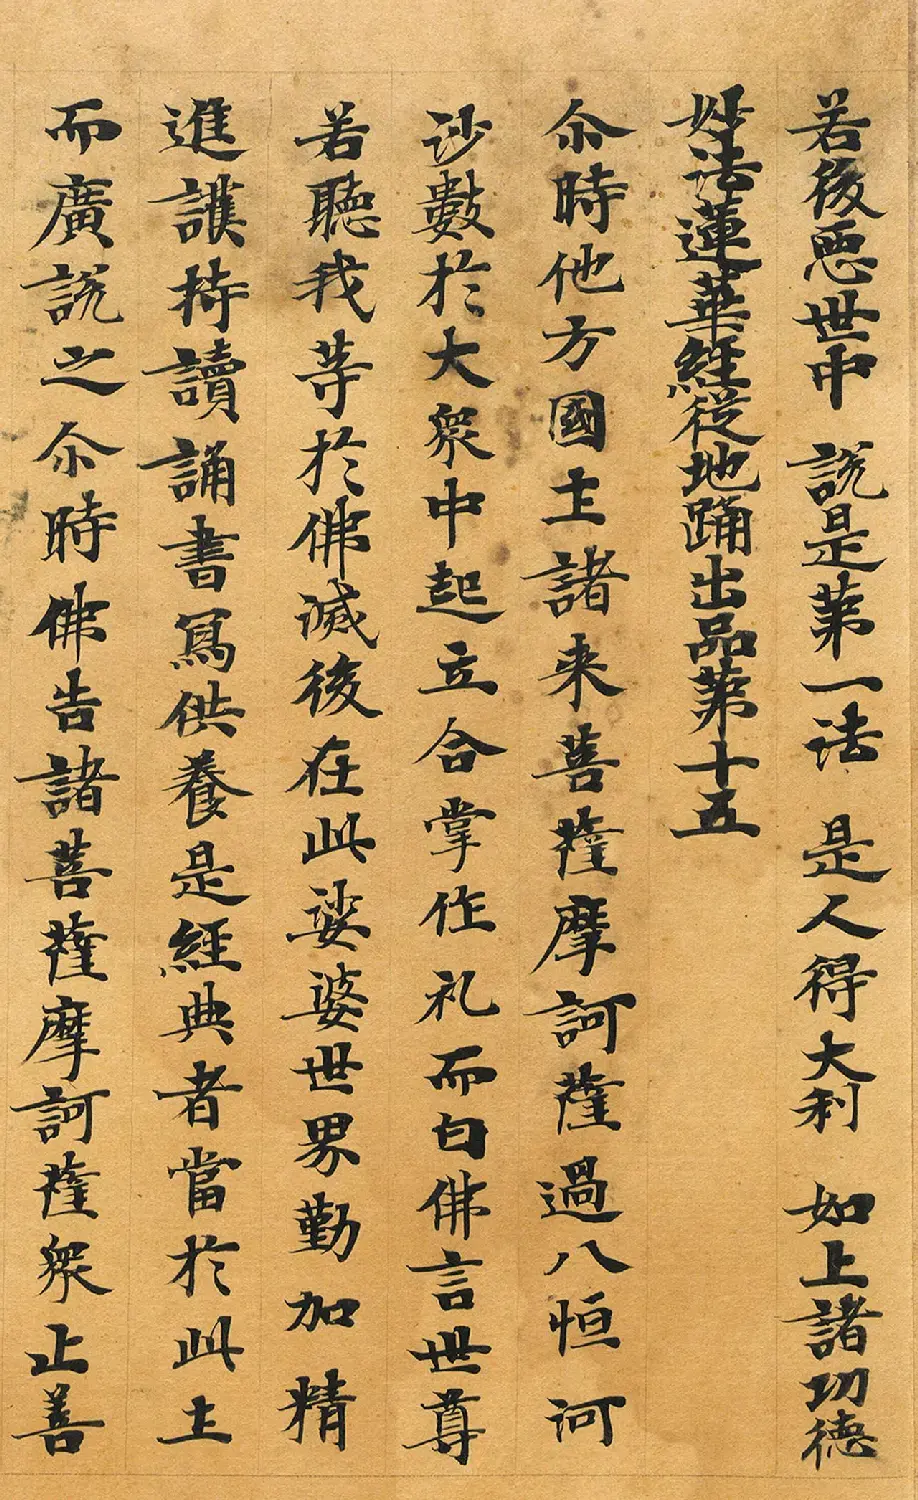 若後惡世中 說是第一法 是人得大利 如上諸功德
妙法蓮華經從地踊出品第十五
尒時他方國土諸來菩薩摩訶薩過八恒河
沙數於大眾中起立合掌作礼而白佛言世尊
若聽我等於佛滅後在此娑婆世界勤加精
進護持讀誦書寫供養是經典者當於此土
而廣說之尒時佛告諸菩薩摩訶薩眾止善